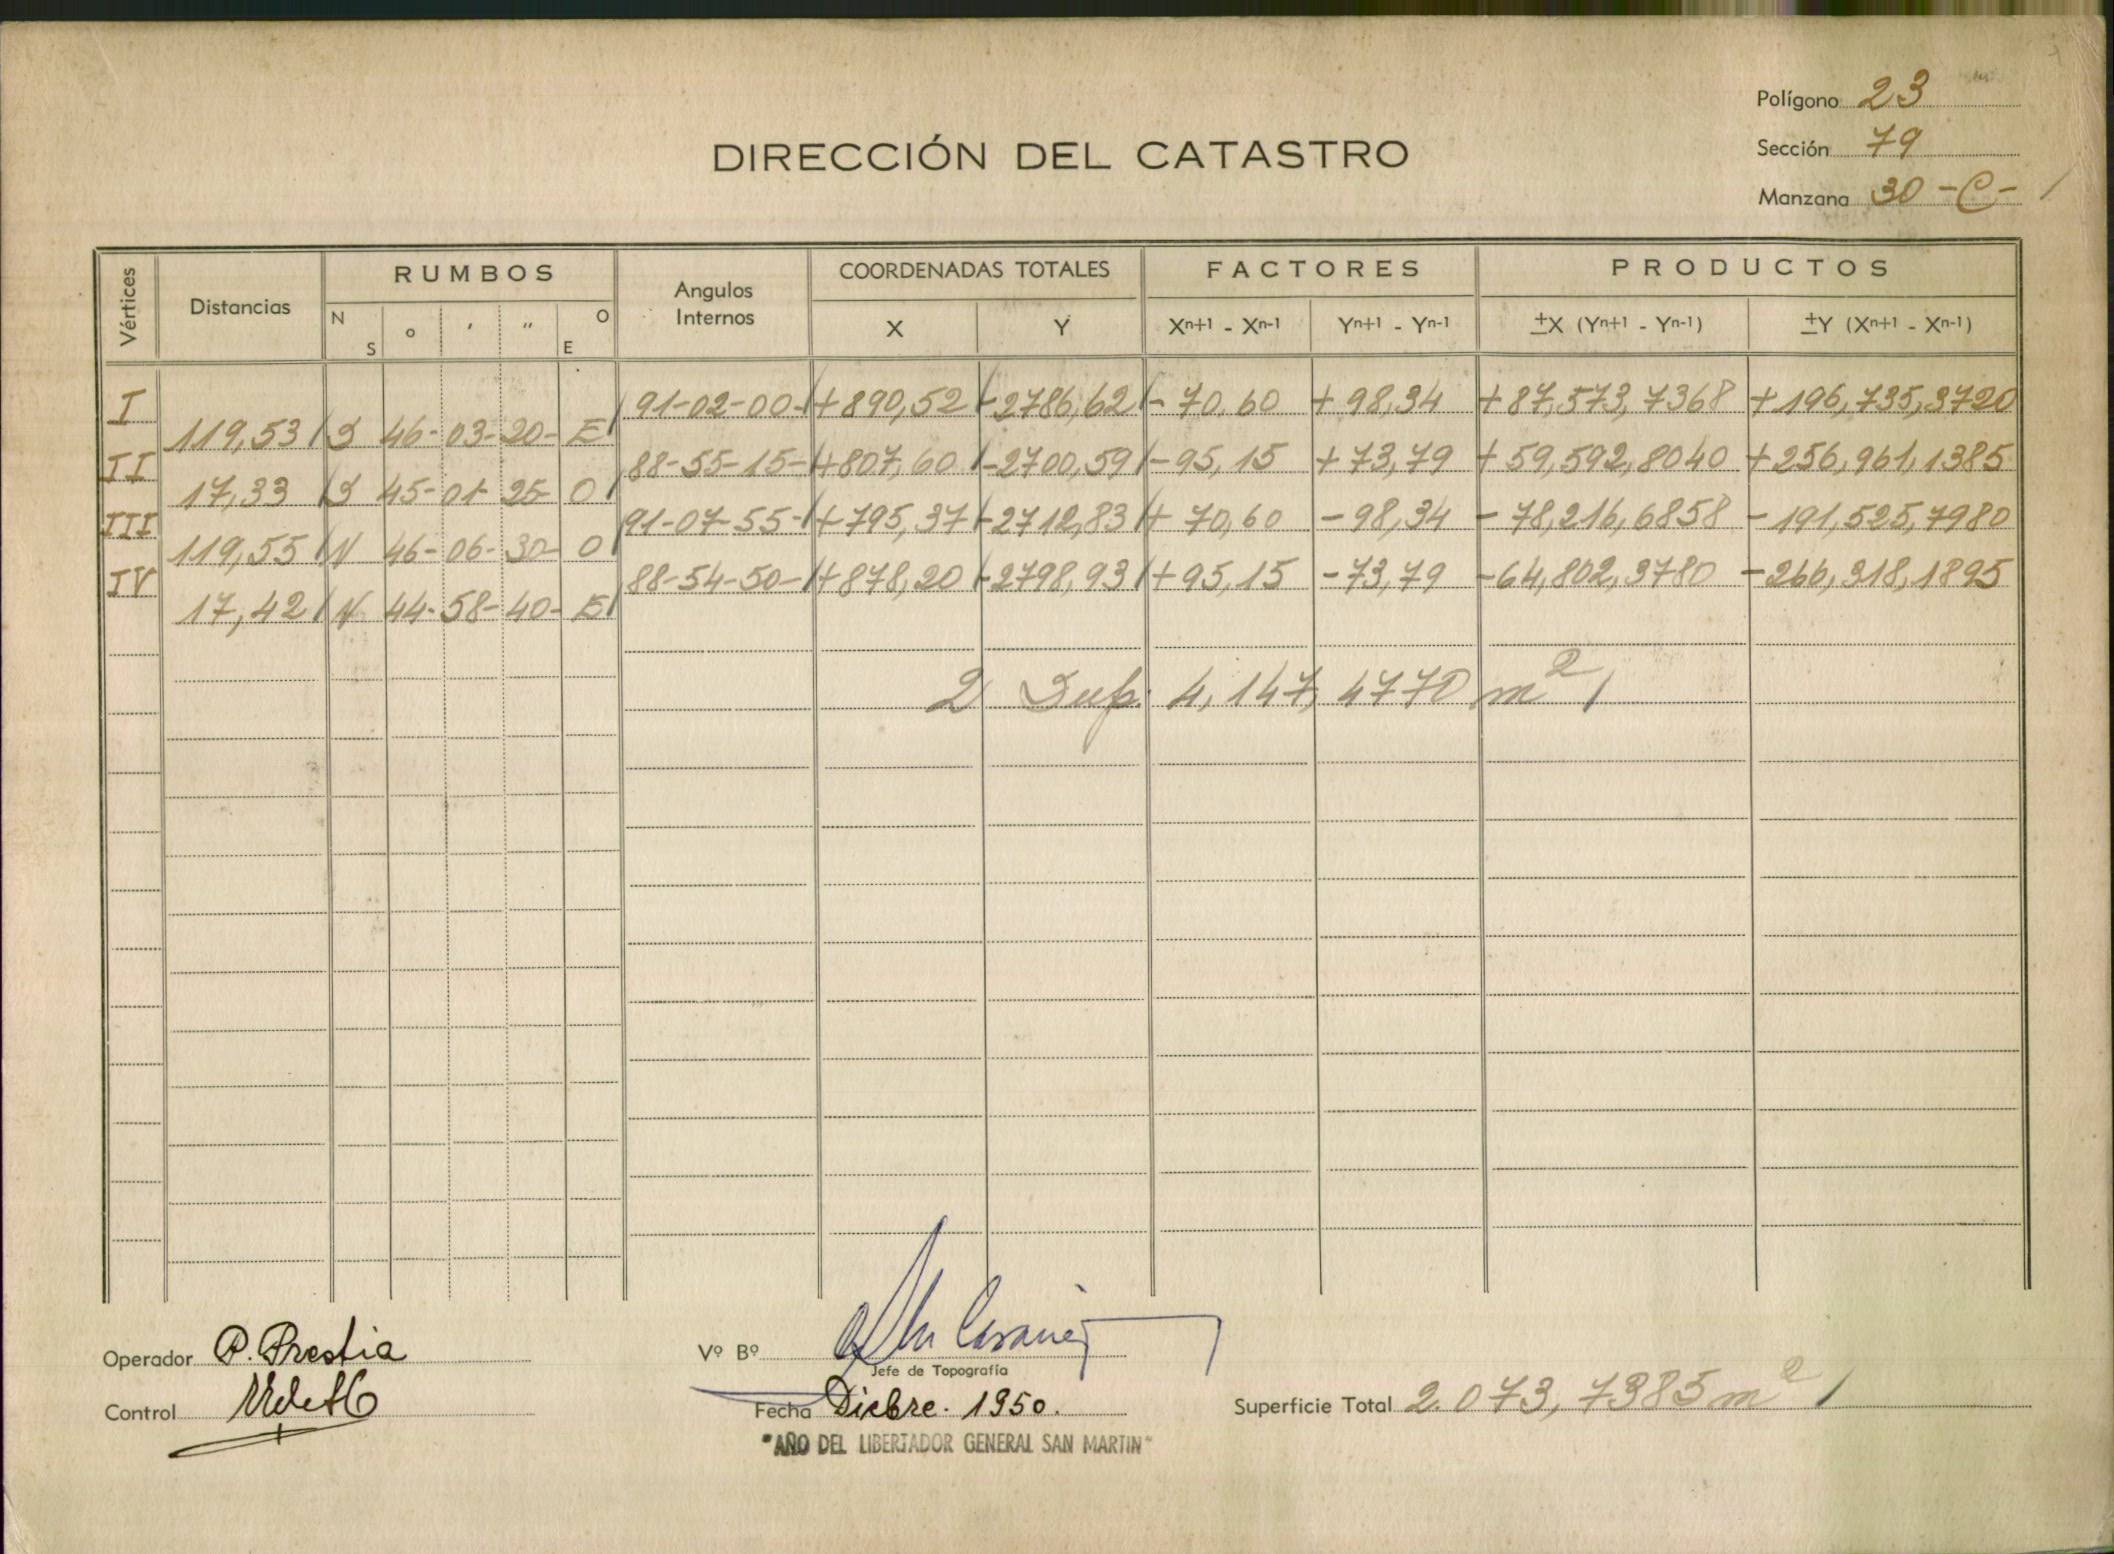 Polígono 23
Sección 79
Manzana 30 - C -
DIRECCIÓN DEL CATASTRO
Vértices Distancias RUMBOS Angulos Internos COORDENADAS TOTALES FACTORES PRODUCTOS
N S ° ' " O E X Y Xn+1 - Xn-1 Yn+1 - Yn-1 ±X (Yn+1 - Yn-1) ±Y (Xn+1 - Xn-1)
I 91-02-00- +890,52 -2786,62 -70,60 +98,34 +87,573,7368 +196,735,3720
119,53 S 46-03-20- E
II 88-55-15- +807,60 -2700,59 -95,15 +73,79 +59,592,8040 +256,961,1385
17,33 S 45-01-25- O
III 91-07-55- +795,37 -2712,83 +70,60 -98,34 -78,216,6858 -191,525,7980
119,55 N 46-06-30- O
IV 88-54-50- +878,20 -2798,93 +95,15 -73,79 -64,802,3780 -266,318,1895
17,42 N 44-58-40- E
2 Sup. 4,147,4770 m²
Operador P. Prestia
Vº Bº
Jefe de Topografía
Control
Fecha Dicbre. 1950.
Superficie Total 2.073,7385 m²
"AÑO DEL LIBERTADOR GENERAL SAN MARTIN"